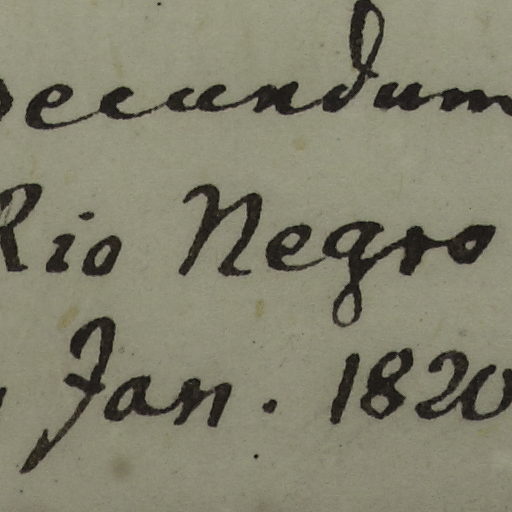 secundum
Rio Negro
Jan. 1820